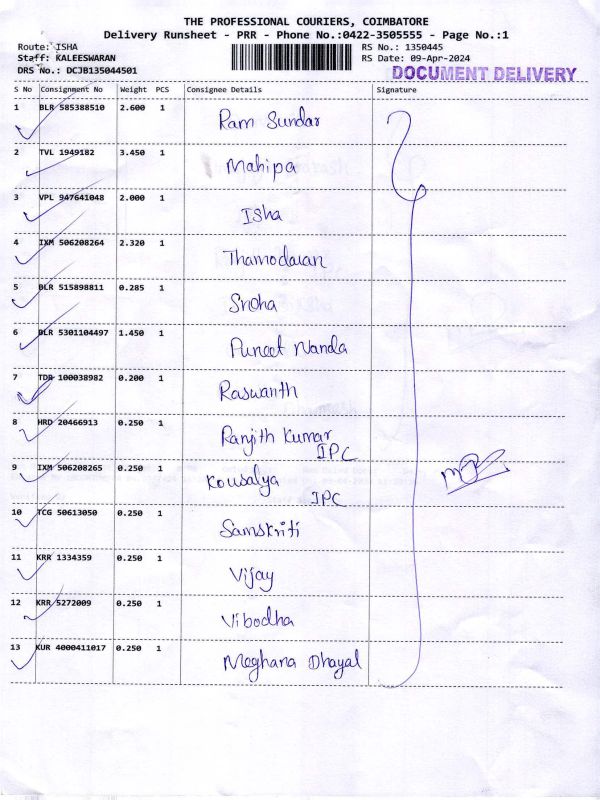 THE PROFESSIONAL COURIERS, COIMBATORE
Delivery Runsheet - PRR - Phone No.:0422-3505555 - Page No.:1
Route: ISHA RS No.: 1350445
Staff: KALEESWARAN RS Date: 09-Apr-2024
DRS No.: DCJB135044501 DOCUMENT DELIVERY
S No Consignment No Weight PCS Consignee Details Signature
1 BLR 585388510 2.600 1 Ram Sundar
2 TVL 1949182 3.450 1 Mahipa
3 VPL 947641048 2.000 1 Isha
4 IXM 506208264 2.320 1 Thamodaran
5 BLR 515898811 0.285 1 Sneha
6 BLR 5301104497 1.450 1 Puneet Nanda
7 TDR 100038982 0.200 1 Raswanth
8 HRD 20466913 0.250 1 Ranjith Kumar
IPC
9 IXM 506208265 0.250 1 Kousalya
IPC
10 TCG 50613050 0.250 1 Samskriti
11 KRR 1334359 0.250 1 Vijay
12 KRR 5272009 0.250 1 Vibodha
13 KUR 4000411017 0.250 1 Meghana Dhayal